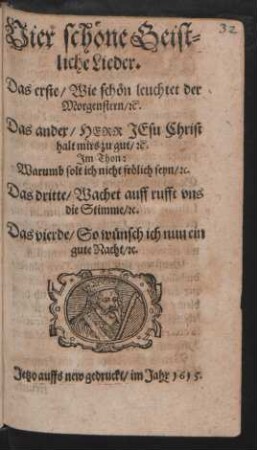 32
Vier schöne Geist-
liche Lieder.
Das erste/ Wie schön leuchtet der
Morgenstern/ ꝛc.
Das ander/ HERR JEsu Christ
halt mirs zu gut/ ꝛc.
Im Thon:
Warumb solt ich nicht frölich seyn/ ꝛc.
Das dritte/ Wachet auff rufft vns
die Stimme/ ꝛc.
Das vierde/ So wünsch ich nun ein
gute Nacht/ ꝛc.
Jetzo auffs new gedruckt/ im Jahr 1615.